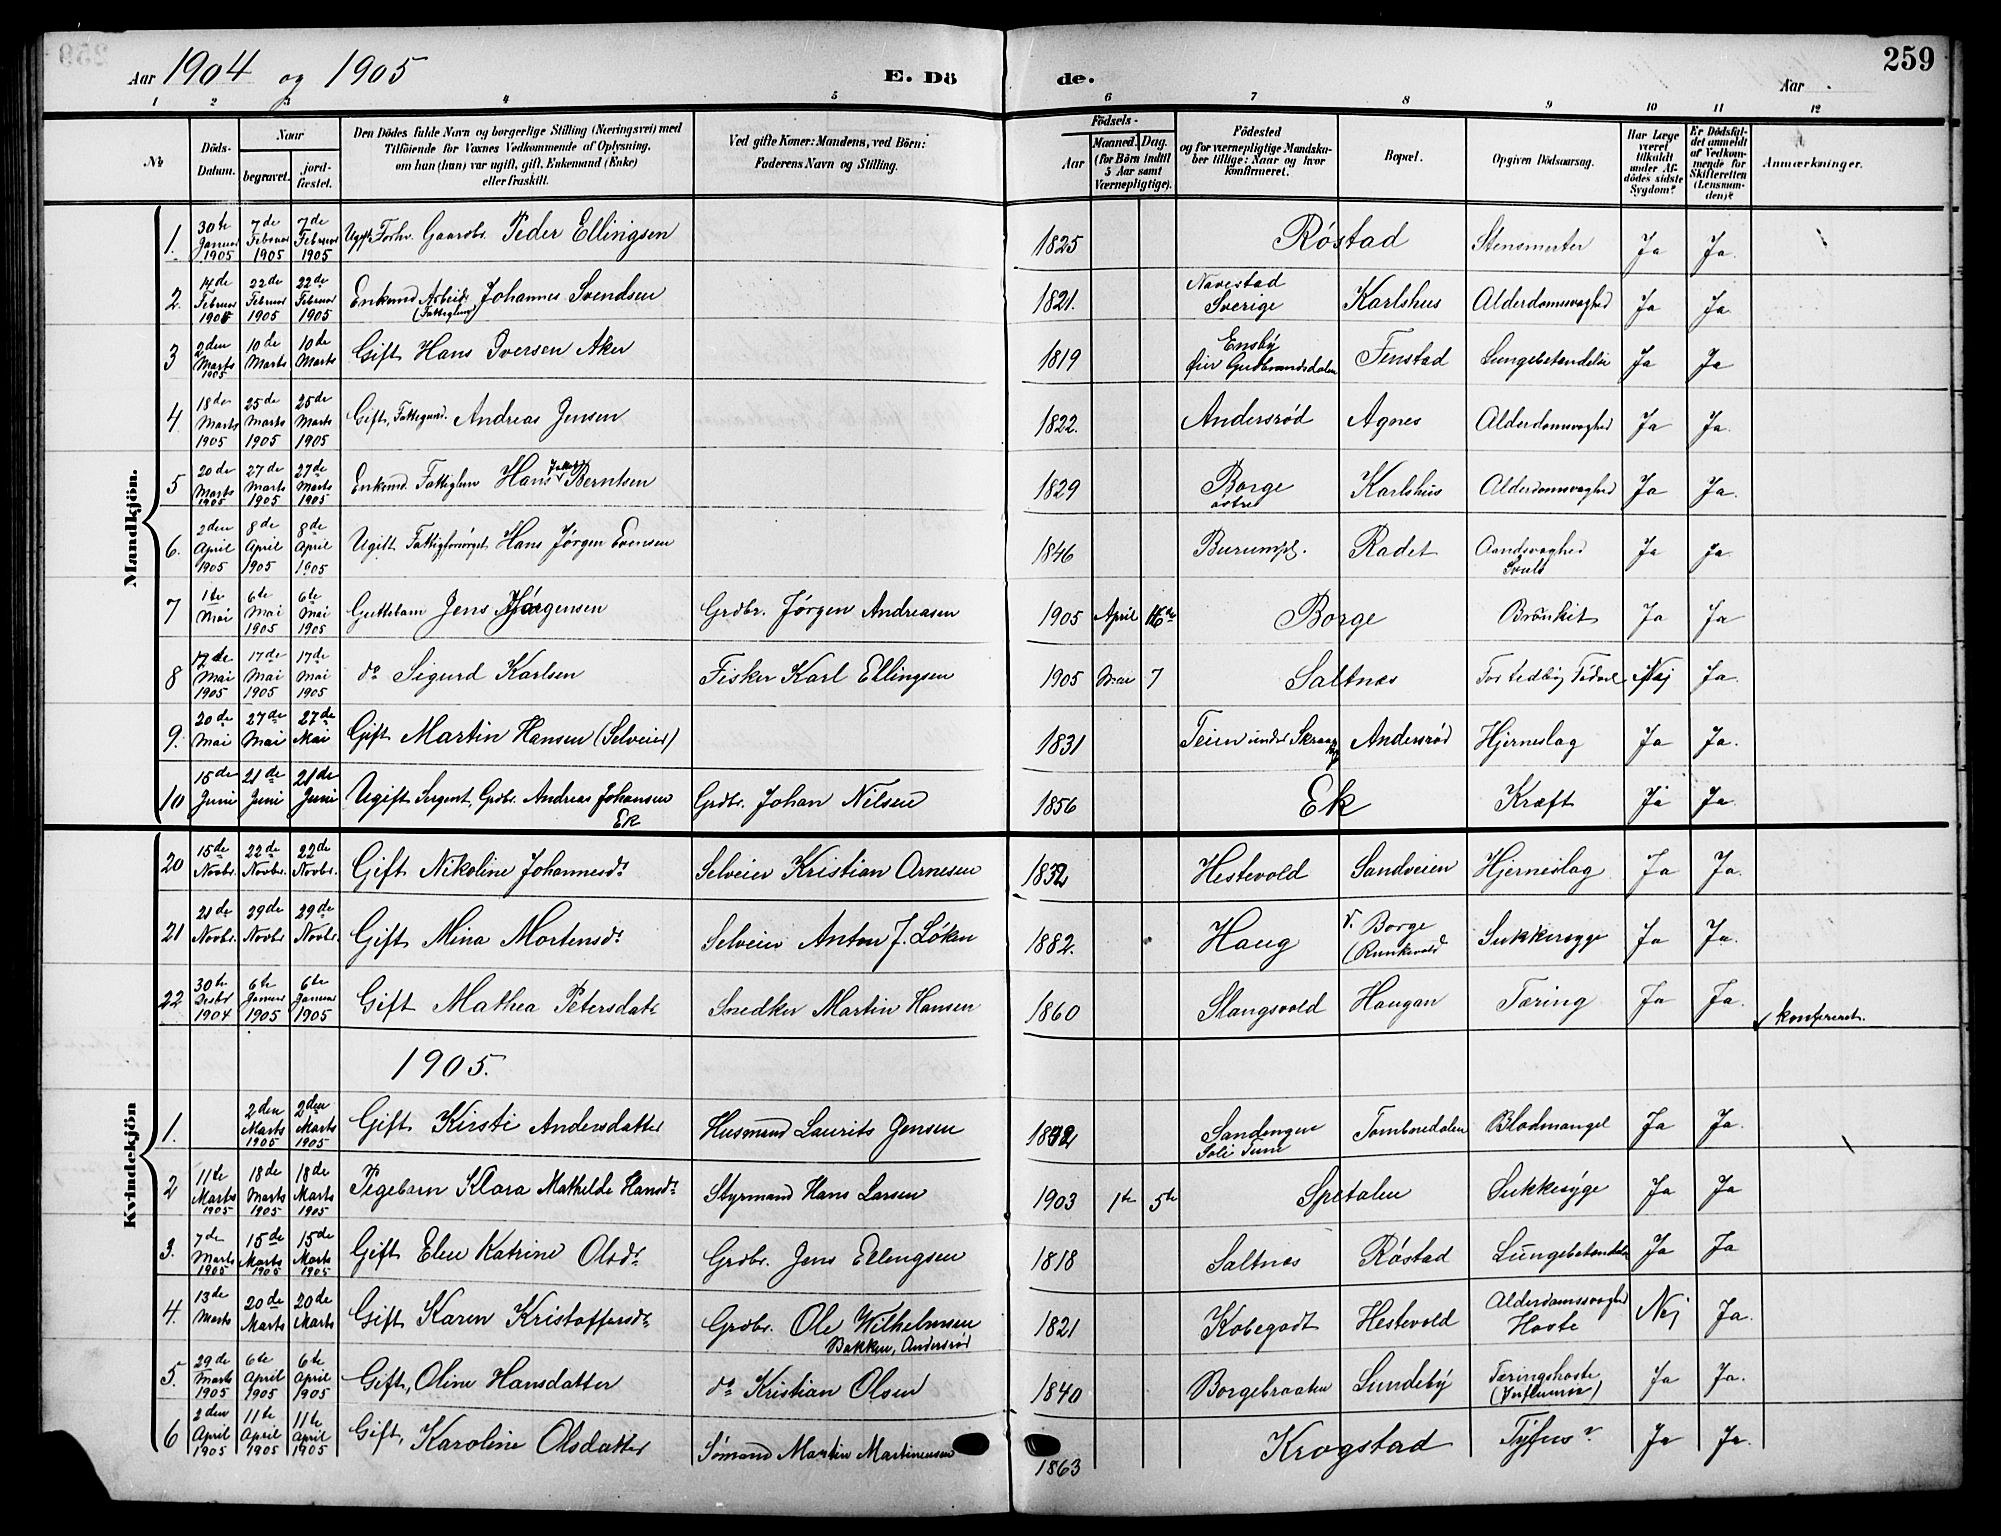 259
Aar 1904 og 1905 E. Dö de. Aar
1 2 3 4 5 6 7 8 9 10 11 12
No
Döds-Datum.
Naar
begravet.
jord-fæstet.
Den Dödes fulde Navn og borgerlige Stilling (Næringsvei) med
Tilföiende for Voxnes Vedkommende af Oplysning,
om han (hun) var ugift, gift, Enkemand (Enke)
eller fraskilt.
Ved gifte Koner: Mandens, ved Börn:
Faderens Navn og Stilling.
Födsels-
Aar
Maaned. Dag.
(for Börn indtil
5 Aar samt
Værnepligtige).
Födested
og for værnepligtige Mandska-
ber tillige: Naar og hvor
konfirmeret.
Bopæl.
Opgiven Dödsaarsag.
Har Læge
været
tilkaldt
under Af-
dödes sidste
Sygdom?
Er Dödsfal-
det anmeldt
af Vedkom-
mende for
Skifteretten
(Lensman-
den)?
Anmærkninger.
Mandkjön.
1. 30te Januar 1905 7de Februar 1905 7de Februar 1905 Ugift Forhv. Gaardbr. Peder Ellingsen 1825 Røstad Stensmerter Ja Ja.
2. 14de Februar 1905 22de Februar 1905 22de Februar 1905 Enkemd Arbeid. (Fattiglem) Johannes Svendsen 1821. Navestad Sverige Karlshus Alderdomsvaghed Ja Ja.
3 2den Marts 1905 10de Marts 10de Marts Gift Hans Iversen Aker 1819 Ensby Øier Gudbrandsdalen Finstad Lungebetændelse Ja Ja
4. 18de Marts 1905 25de Marts 1905 25de Marts 1905 Gift, Fattigund. Andreas Jensen 1822. Andersrød Agnes Alderdomsvaghed Ja Ja.
5 20de Marts 1905 27de Marts 1905 27de Marts 1905 Enkemd. Fattiglem Hans Jakob Berntsen 1829 Borge østre Karlshus Alderdomsvaghed Ja Ja.
6. 2den April 1905 8de April 1905 8de April 1905 Ugift Fattigforsørget Hans Jørgen Evensen 1846 Burumpl. Radet Aandsvaghed Ja Ja
7 1te Mai 6te Mai 1905 6te Mai 1905 Guttebarn Jens Jørgensen Grdbr. Jørgen Andreasen 1905 April 16de Borge Bronkit Ja Ja
8 12de Mai 1905 17de Mai 1905 17de Mai 1905 do Sigurd Karlsen Fisker Karl Ellingsen 1905 Mai 7 Saltnæs For tidlig Fødsel Nej Ja.
9. 20de Mai 27de Mai 27de Mai Gift Martin Hansen (Selveier) 1831 Teien under Andersrød Hjerneslag Ja Ja.
10 15de Juni 21de Juni 21de Juni Ugift Sergent, Grdbr. Andreas Johansen Ek Grdbr. Johan Nilsen 1856 Ek Kræft Ja Ja.
Kvindekjön
20 15de Novbr. 22de Novbr. 22de Novbr. Gift Nikoline Johannesdr Selveier Kristian Arnesen 1832 Hestevold Sandveien Hjerneslag Ja Ja.
21 21de Novbr. 29de Novbr. 29de Novbr. Gift Mina Mortensdr Selveier Anton J. Løken 1882. Haug v. Borge (Runkevold Sukkersyge Ja Ja.
22 30te Desbr 1904 6te Januar 1905 6te Januar 1905 Gift Mathea Petersdatr Snedker Martin Hansen 1860 Slangsvold Haugan Tæring Ja Ja. konfereret.
1905.
1. 2den Marts 1905 2den Marts 1905 Gift Kirsti Andersdatter Husmand Laurits Jensen Sandengen Soli Tune Tomboredalen Blodmangel Ja Ja.
2 11te Marts 1905 18de Marts 1905 18de Marts 1905 Pigebarn Klara Mathilde Hansdr Styrmand Hans Larsen 1903 1te 5te Spetalen Sukkesyge Ja Ja
3. 7de Marts 1905 15de Marts 1905 15de Marts 1905 Gift Elen Katrine Olsdr Grdbr. Jens Ellingsen 1818 Saltnæs Røstad Lungebetændelse Ja Ja
4. 13de Marts 20de Marts 20de Marts Gift Karen Kristoffersdr Grdbr. Ole Wilhelmsen Bakken, Andersrød 1821 Kobegodt Hestevold Alderdomssvaghed Hoste Nej Ja.
5. 29de Marts 1905 6te April 1905 6te April 1905 Gift, Oline Hansdatter do Kristian Olsen 1840 Borgebraaten Lundeby Tæringshoste (Influensa) Ja Ja.
6 2den April 1905 11te April 1905 11te April 1905 Gift, Karoline Olsdatter Sømand Martin Martinensen 1863 Krogstad Tyfus? Ja Ja.